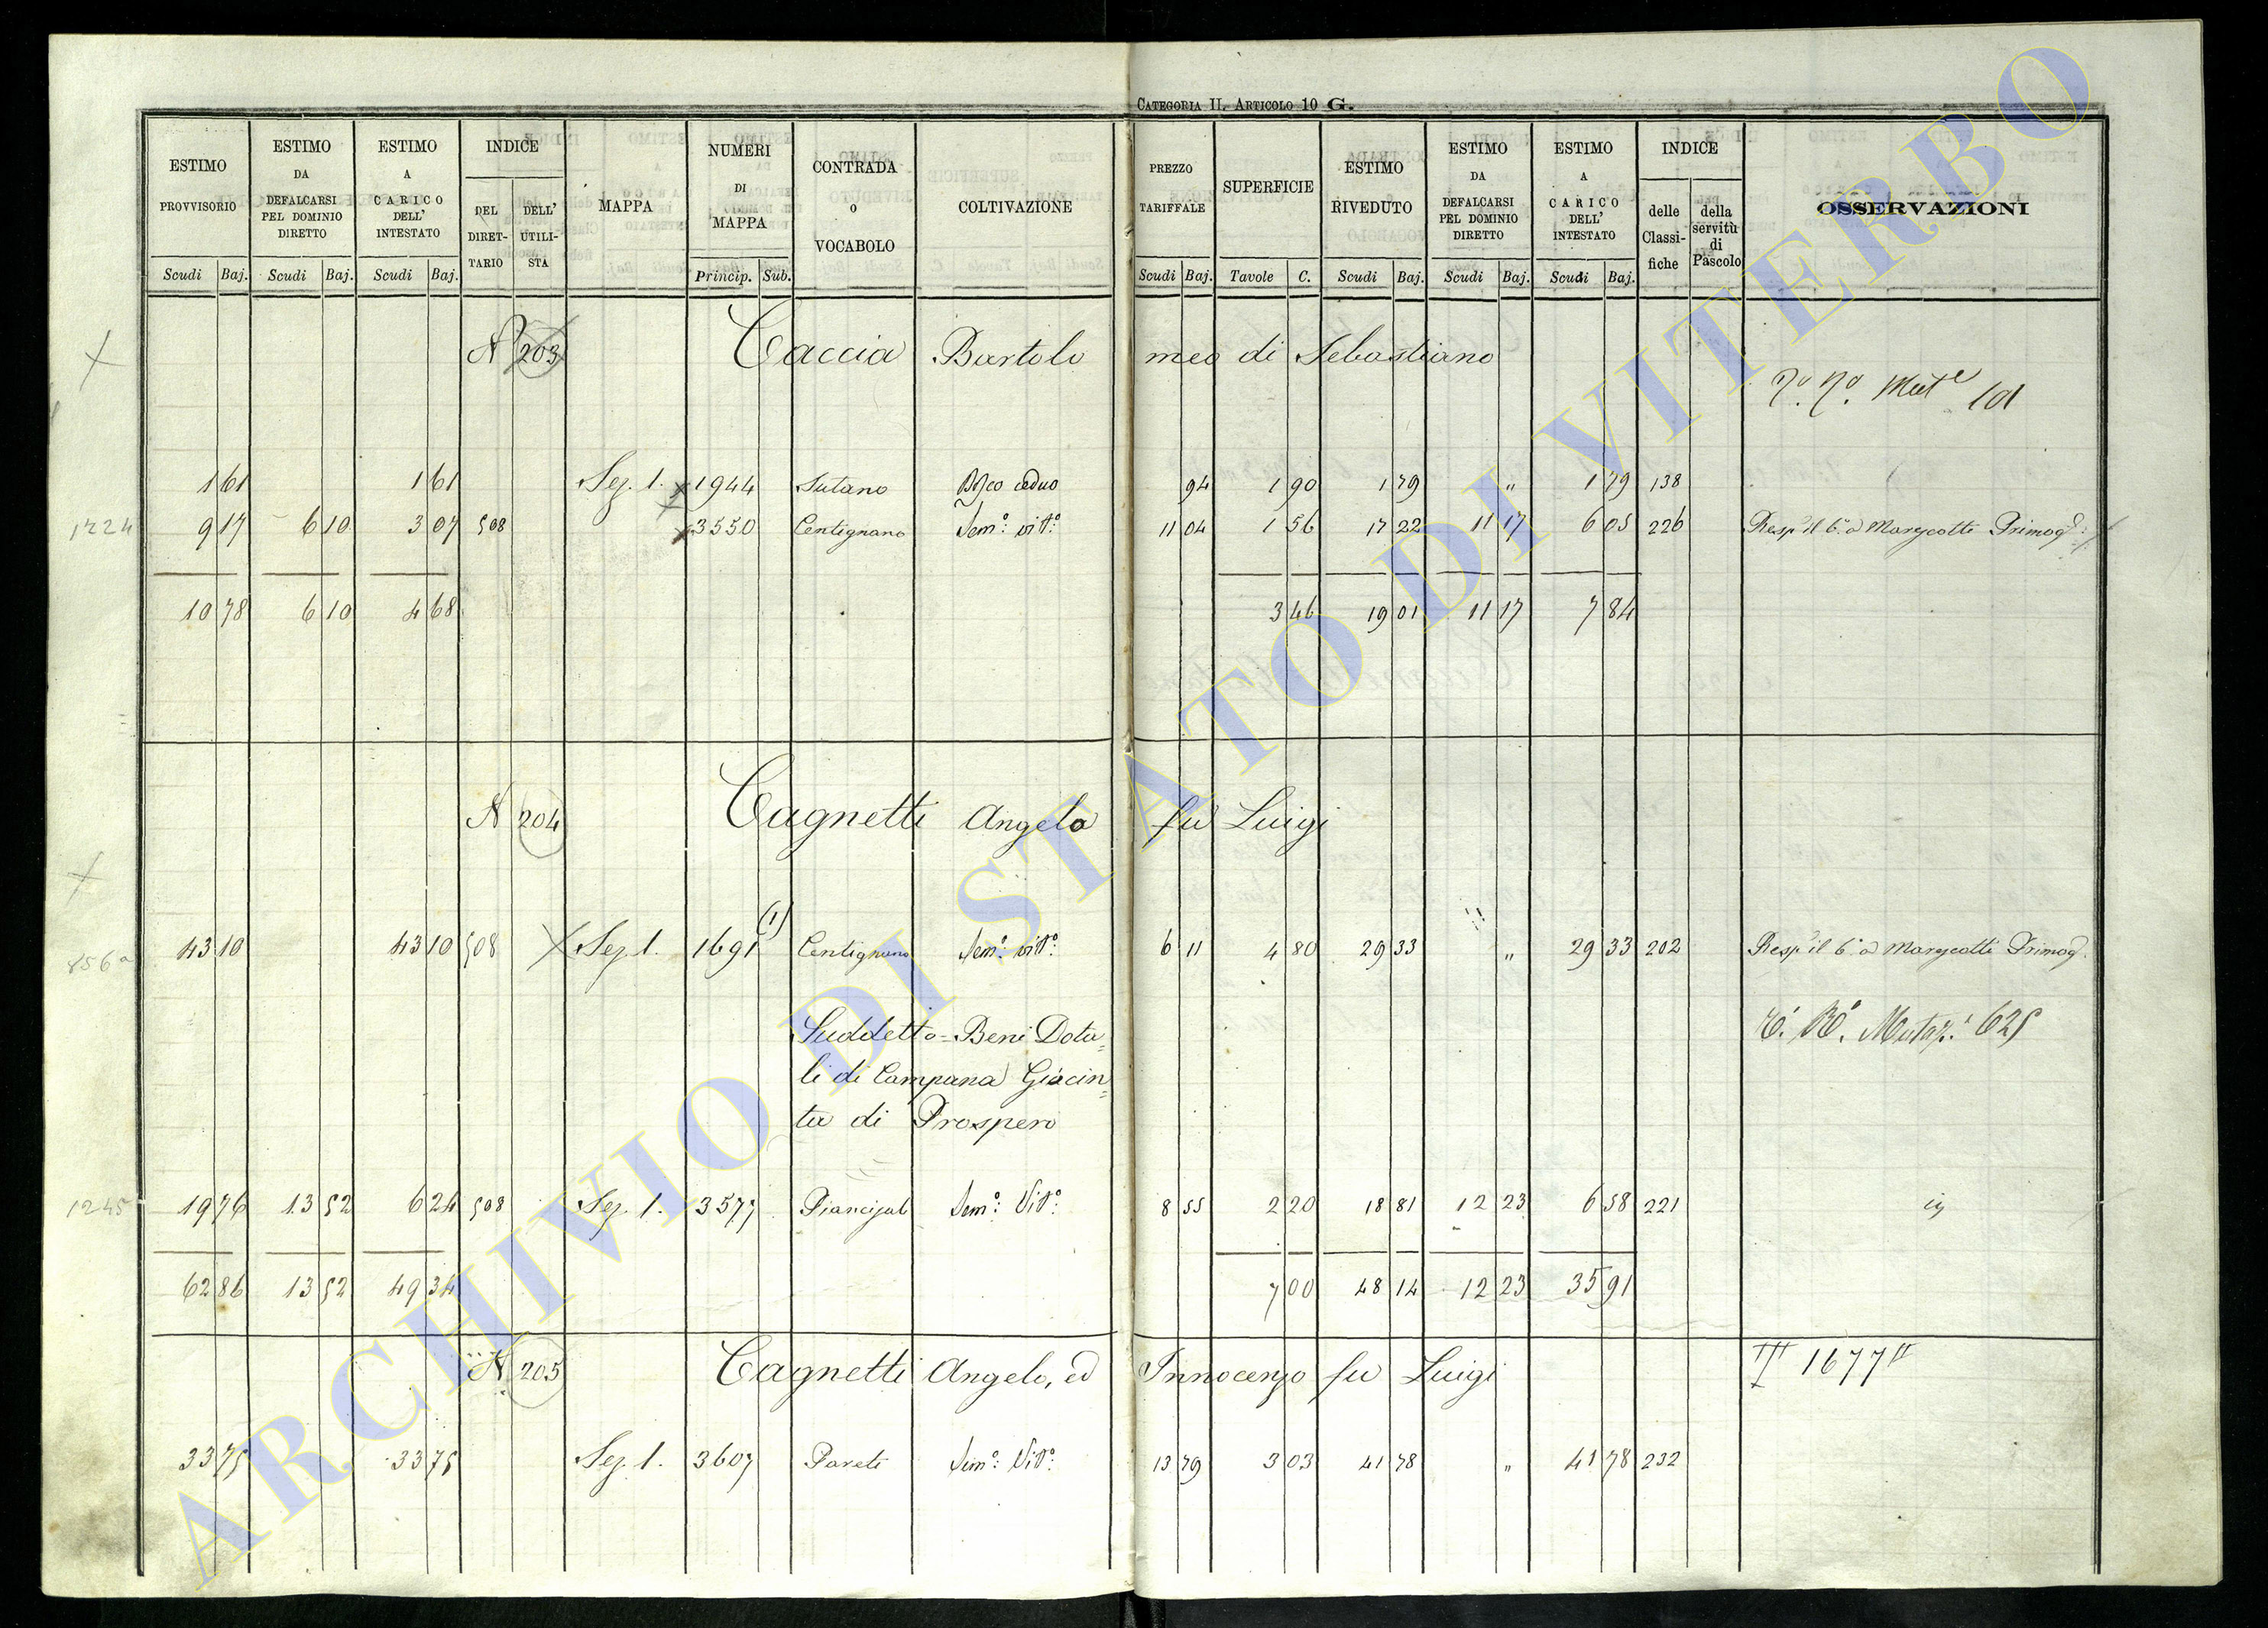 CATEGORIA II. ARTICOLO 10 G.
ESTIMO PROVVISORIO Scudi Baj.
ESTIMO DA DEFALCARSI PEL DOMINIO DIRETTO Scudi Baj.
ESTIMO A CARICO DELL' INTESTATO Scudi Baj.
INDICE DEL DIRET-TARIO DELL' UTILI-STA
MAPPA
NUMERI DI MAPPA Princip. Sub.
CONTRADA O VOCABOLO
COLTIVAZIONE
PREZZO TARIFFALE Scudi Baj.
SUPERFICIE Tavole C.
ESTIMO RIVEDUTO Scudi Baj.
ESTIMO DA DEFALCARSI PEL DOMINIO DIRETTO Scudi Baj.
ESTIMO A CARICO DELL' INTESTATO Scudi Baj.
INDICE delle Classi-fiche della servitù di Pascolo
OSSERVAZIONI
N 203 Caccia Bartolo meo di Sebastiano
101
1 61 1 61 Sez. 1. 1944 Sutano Bosco ceduo 94 1 90 1 79 " 1 79 138
1224 9 17 6 10 3 07 508 3550 Centignano Sem.o vit.o 11 04 1 56 17 22 11 17 6 05 226 Resp. il 6.a a Marescotti Primog.
10 78 6 10 4 68 3 46 19 01 11 17 7 84
N 204 Cagnetti Angelo fu Luigi
856a 43 10 43 10 508 Sez. 1. 1691 (1) Centignano Sem.o vit.o 6 11 4 80 29 33 " 29 33 202 Resp. il 6.a a Marescotti Primog.
Suddetto = Beni Dota=
li di Campana Giacin=
ta di Prospero
Mutaz. 625
1245 19 76 13 52 6 24 508 Sez. 1. 3577 Sem.o Vit.o 8 55 2 20 18 81 12 23 6 58 221
62 86 13 52 49 34 7 00 48 14 12 23 35 91
N 205 Cagnetti Angelo, ed Innocenzo fu Luigi
1677
33 75 33 75 Sez. 1. 3607 Pareti Sem.o Vit.o 13 79 3 03 41 78 " 41 78 232
ARCHIVIO DI STATO DI VITERBO